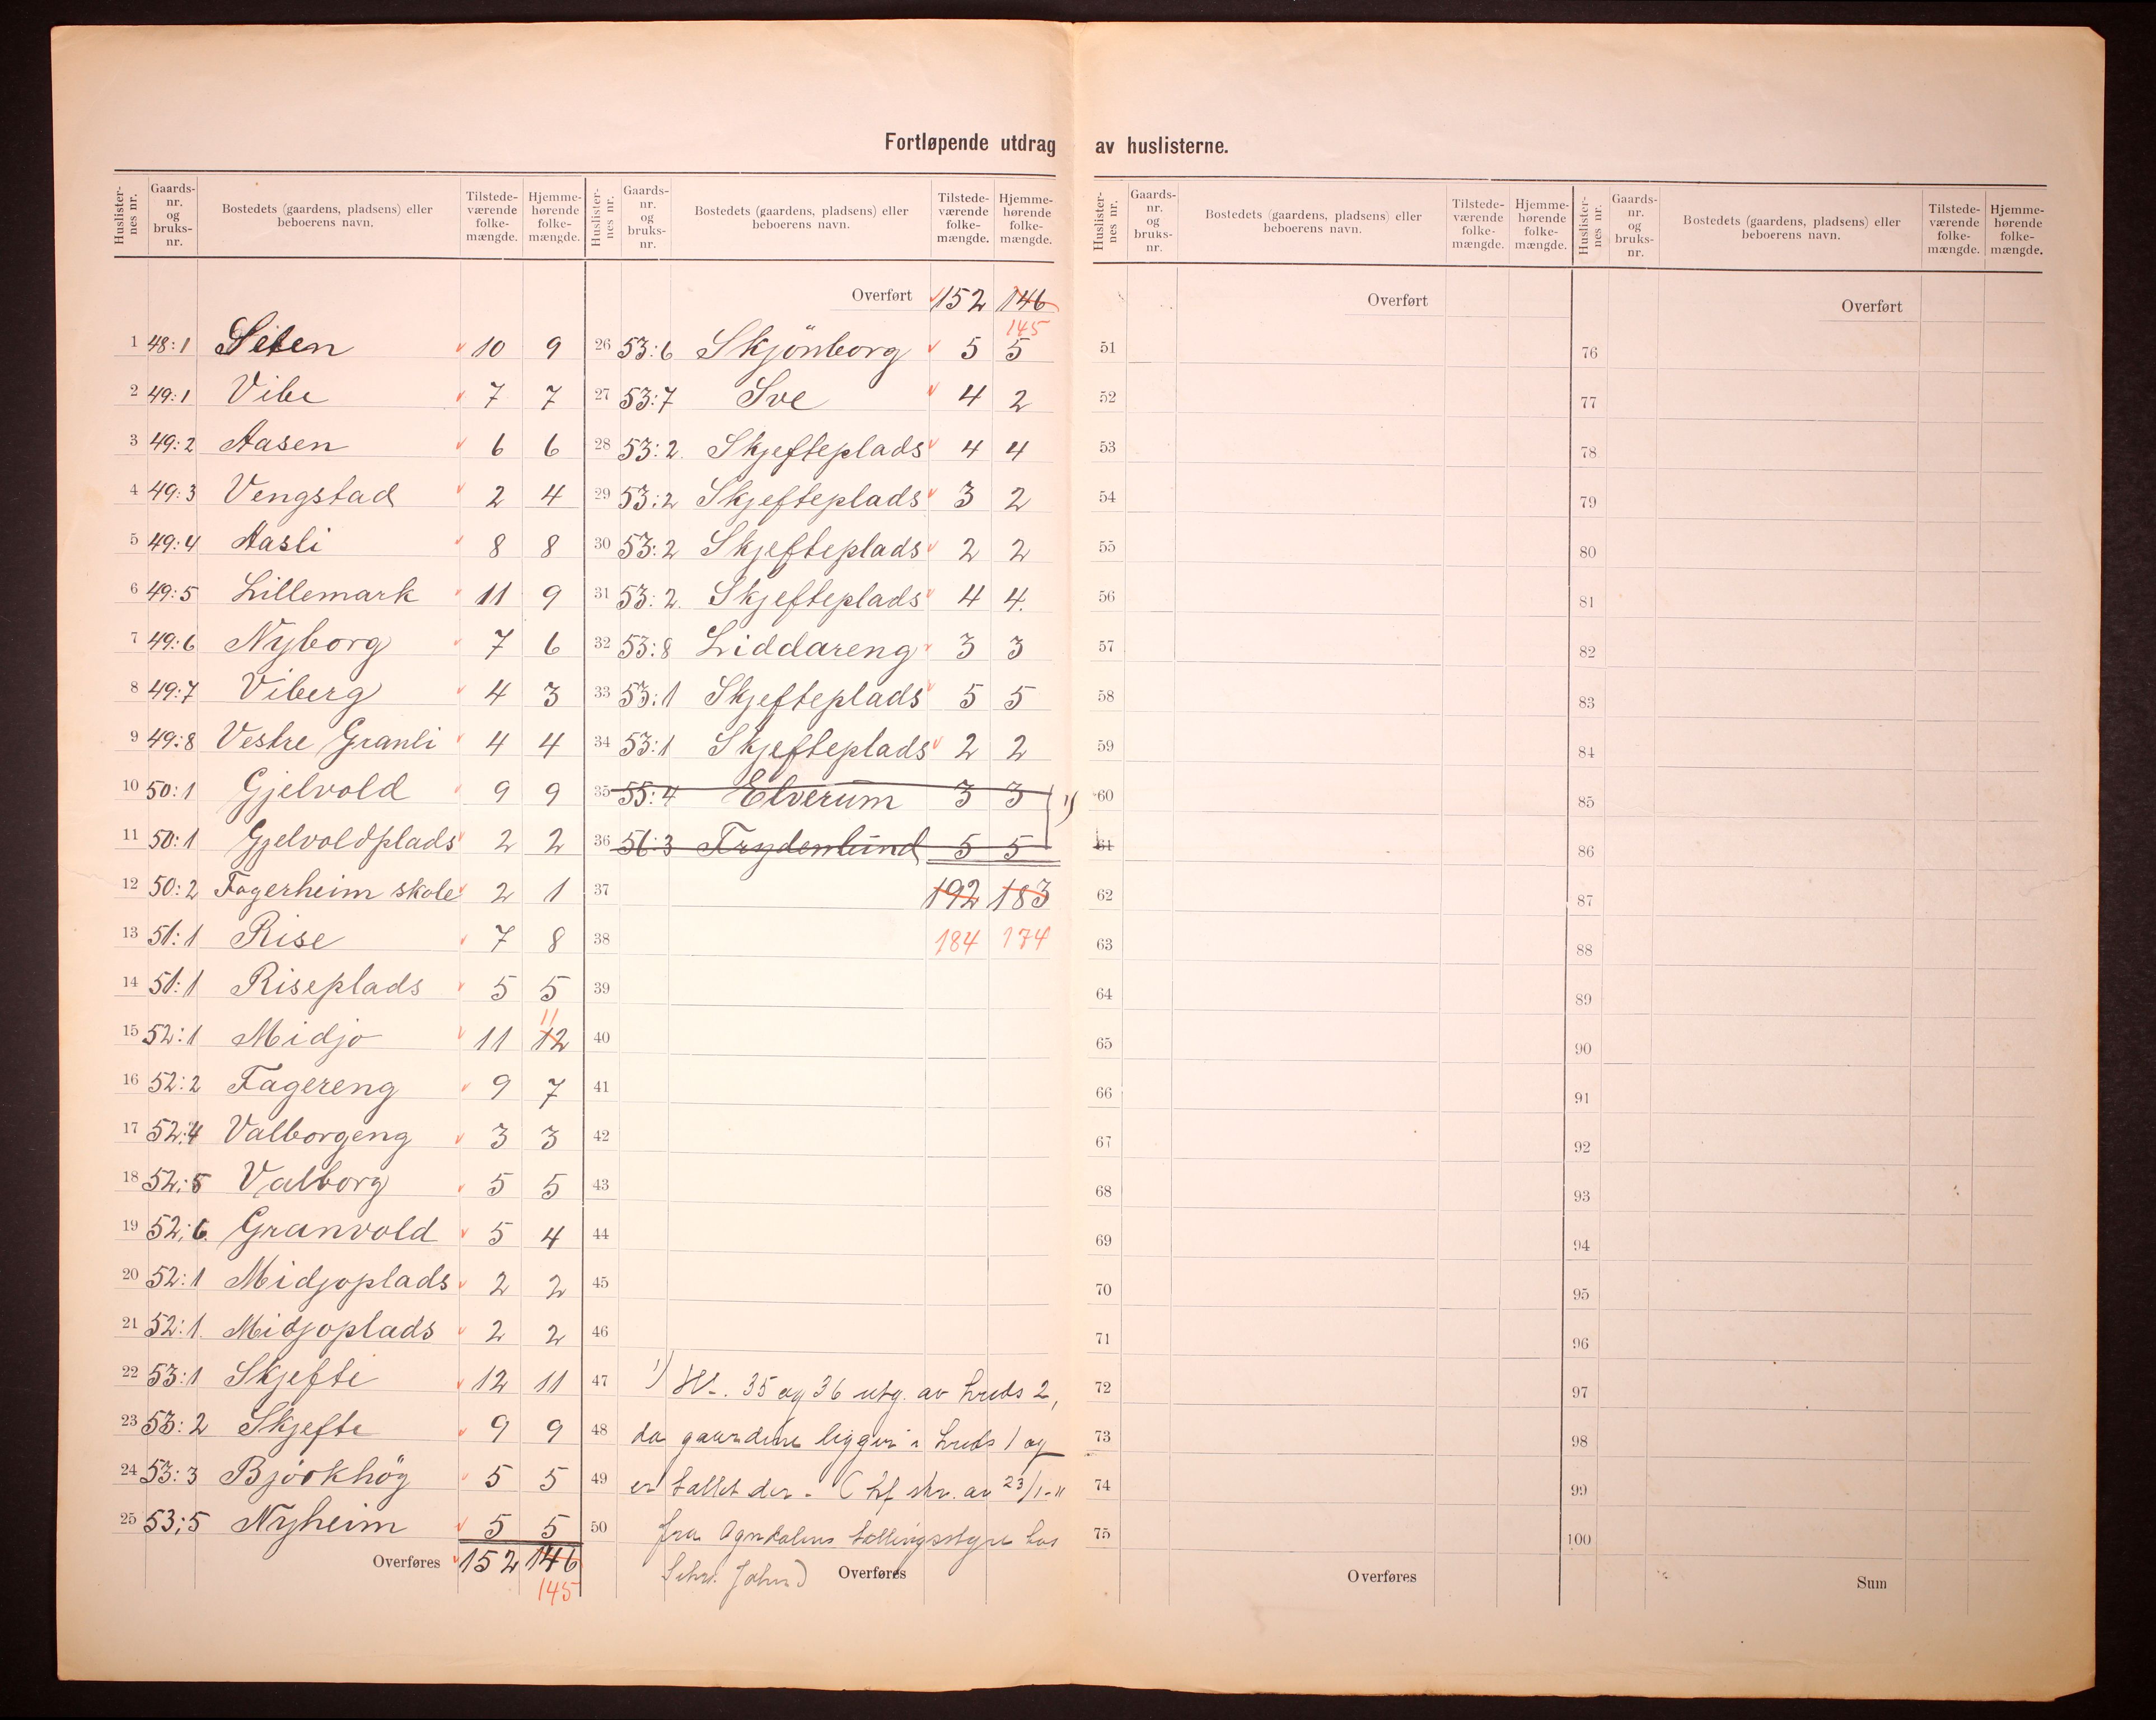 Fortløpende utdrag av huslisterne.
Huslisternes nr. Gaards-nr. og bruks-nr. Bostedets (gaardens, pladsens) eller beboerens navn. Tilstede-værende folke-mængde. Hjemme-hørende folke-mængde.
1 48:1 Seten 10 9
2 49:1 Vibe 7 7
3 49:2 Aasen 6 6
4 49:3 Vengstad 2 4
5 49:4 Aasli 8 8
6 49:5 Lillemark 11 9
7 49:6 Nyborg 7 6
8 49:7 Viberg 4 3
9 49:8 Vestre Granli 4 4
10 50:1 Gjelvold 9 9
11 50:1 Gjelvoldplads 2 2
12 50:2 Fagerheim skole 2 1
13 51:1 Rise 7 8
14 51:1 Riseplads 5 5
15 52:1 Midjo 11 12 11
16 52:2 Fagereng 9 7
17 52:4 Valborgeng 3 3
18 52:5 Valborg 5 5
19 52:6 Granvold 5 4
20 52:1 Midjoplads 2 2
21 52:1 Midjoplads 2 2
22 53:1 Skjefte 12 11
23 53:2 Skjefte 9 9
24 53:3 Bjørkhög 5 5
25 53:5 Nyheim 5 5
Overføres 152 146
145
Huslisternes nr. Gaards-nr. og bruks-nr. Bostedets (gaardens, pladsens) eller beboerens navn. Tilstede-værende folke-mængde. Hjemme-hørende folke-mængde.
Overført 152 146
145
26 53:6 Skjönborg 5 5
27 53:7 Sve 4 2
28 53:2. Skjefteplads 4 4
29 53:2 Skjefteplads 3 2
30 53:2 Skjefteplads 2 2
31 53:2. Skjefteplads 4 4.
32 53:8 Liddareng 3 3
33 53:1 Skjefteplads 5 5
34 53:1 Skjefteplads 2 2
35 55:4 Elverum 3 3 1)
36 56:3 Frydenlund 5 5
37 192 183
38 184 174
39
40
41
42
43
44
45
46
47 1) Hl. 35 og 36 utg. av kreds 2,
48 da gaardene ligger i kreds 1 og
49 er tallet der. (kf skr. av 23/1-11
50 fra Agndalens tællingsstyre hos
Sekr. Jahn) Overføres
Huslisternes nr. Gaards-nr. og bruks-nr. Bostedets (gaardens, pladsens) eller beboerens navn. Tilstede-værende folke-mængde. Hjemme-hørende folke-mængde.
Overført
51
52
53
54
55
56
57
58
59
60
61
62
63
64
65
66
67
68
69
70
71
72
73
74
75
Overføres
Huslisternes nr. Gaards-nr. og bruks-nr. Bostedets (gaardens, pladsens) eller beboerens navn. Tilstede-værende folke-mængde. Hjemme-hørende folke-mængde.
Overført
76
77
78
79
80
81
82
83
84
85
86
87
88
89
90
91
92
93
94
95
96
97
98
99
100
Sum